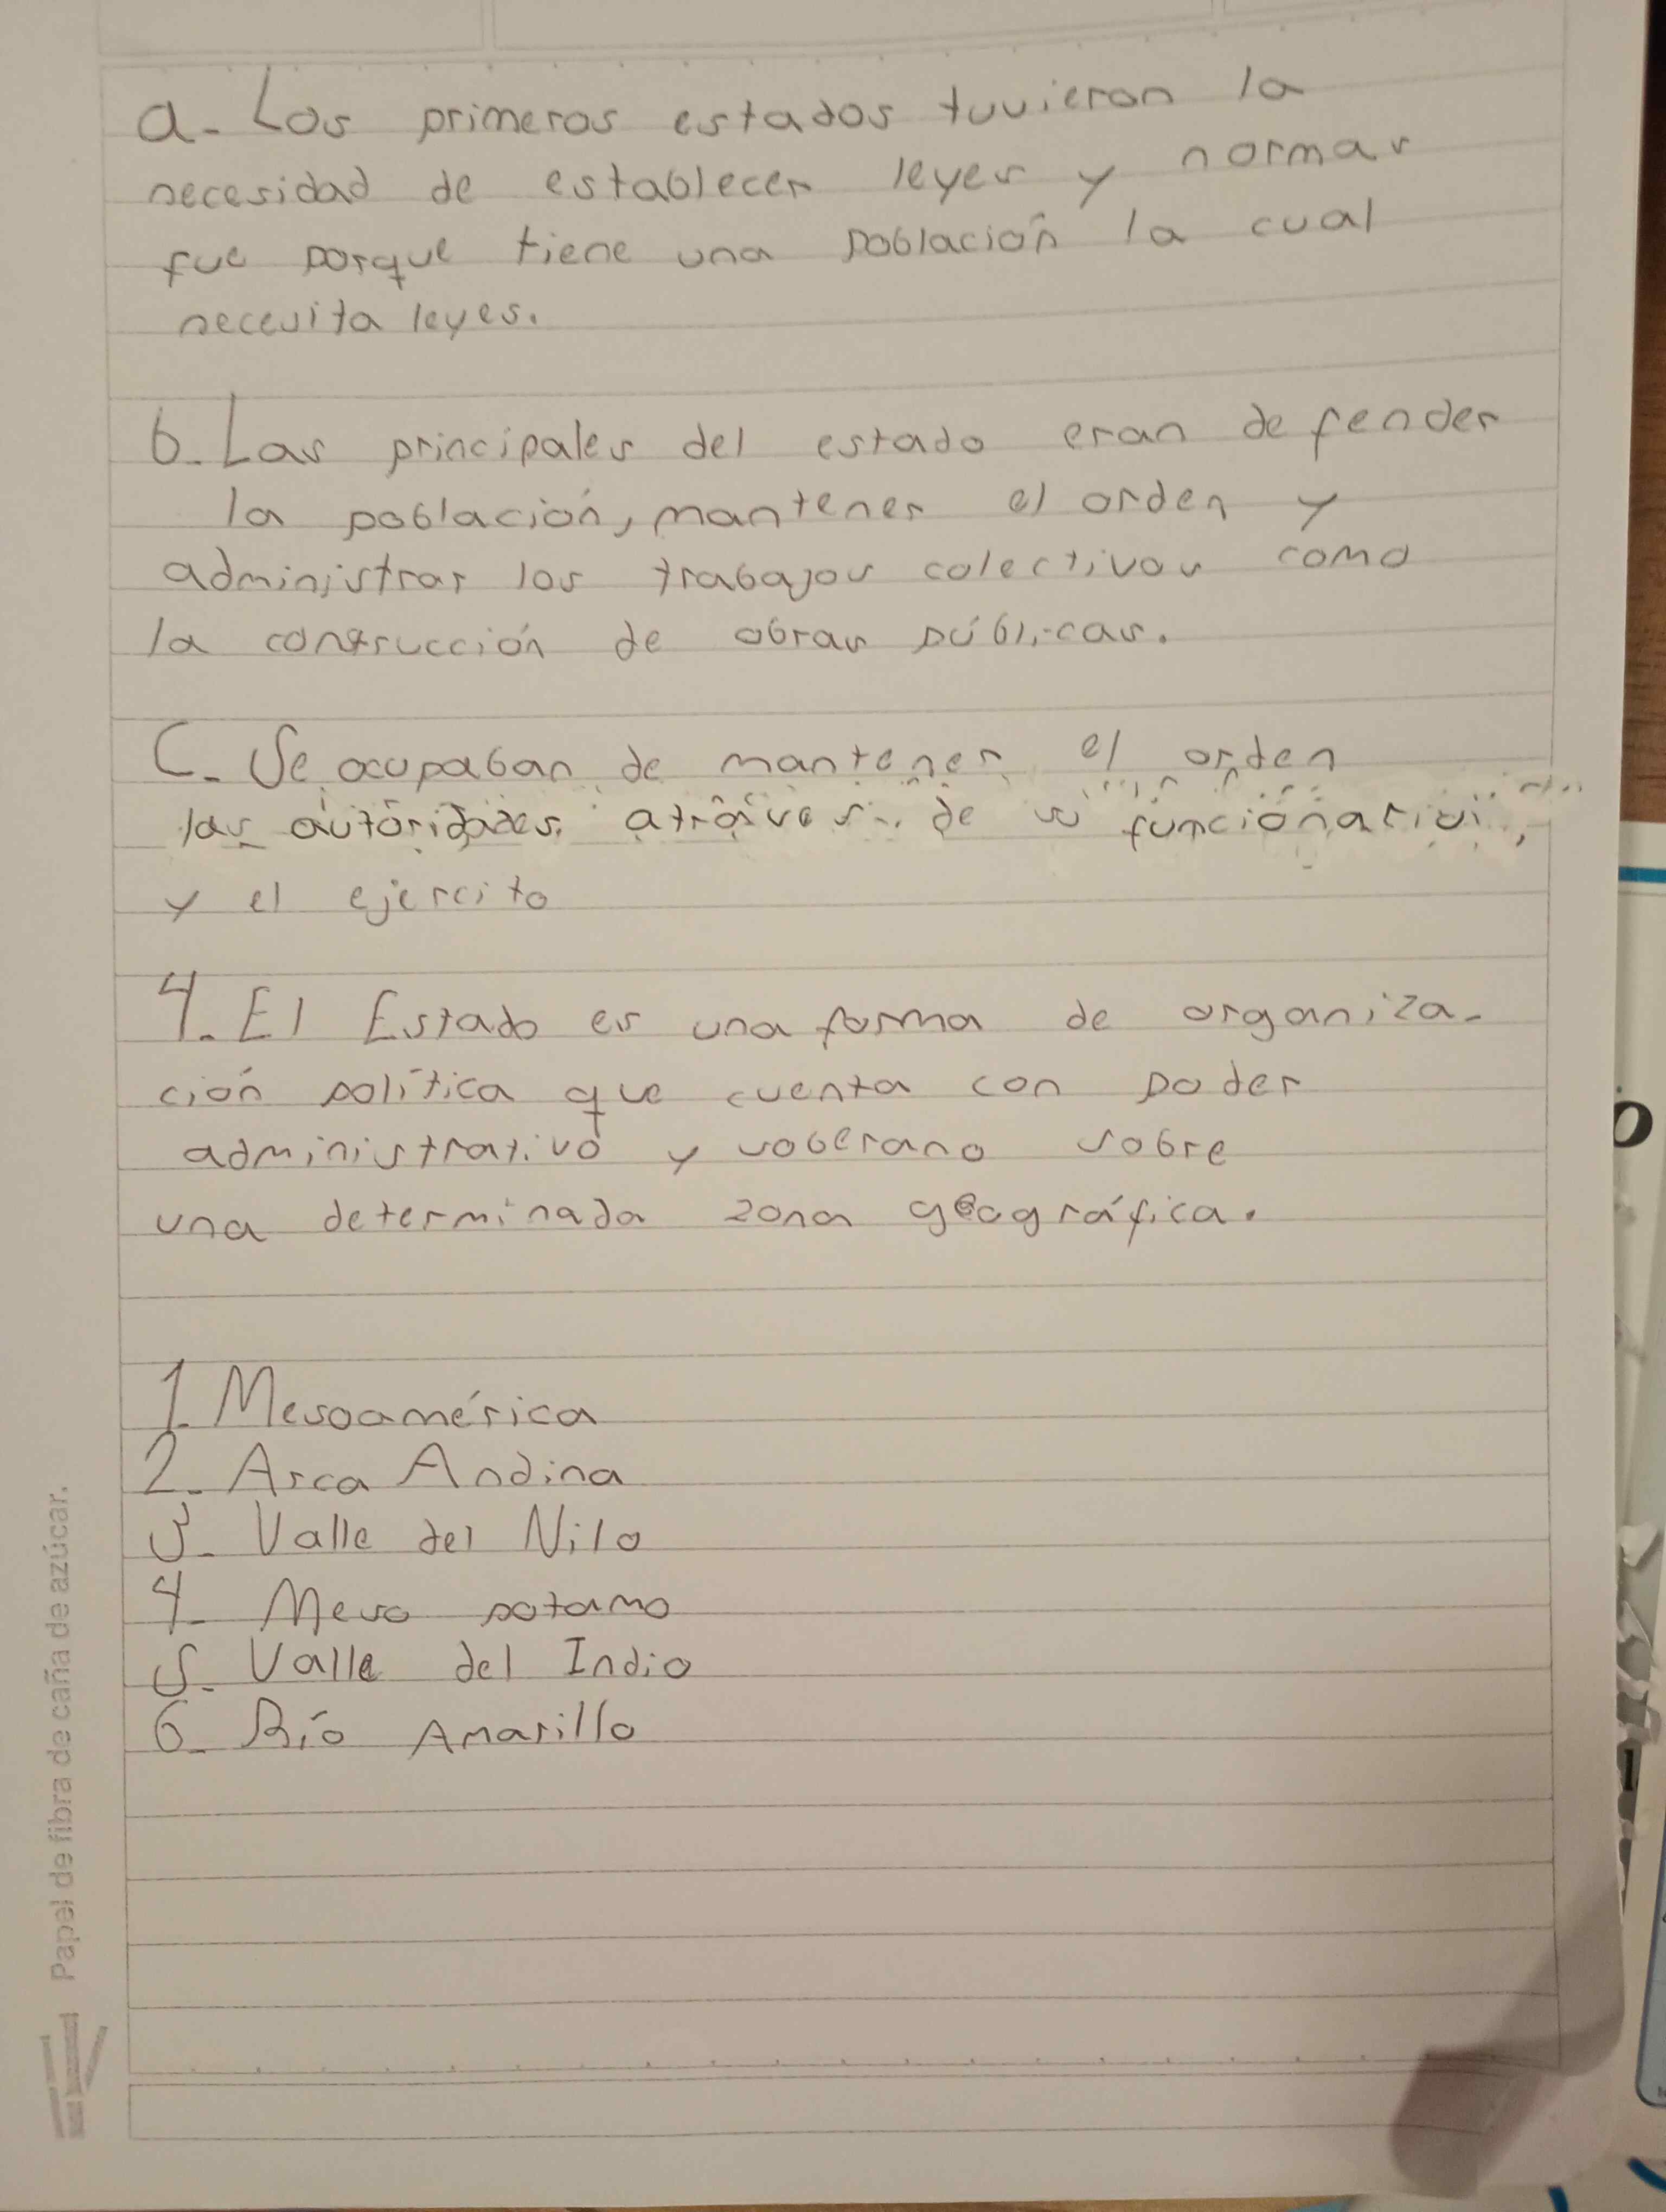 a. Los primeros estados tuvieron la
necesidad de establecer leyes y normas
fue porque tiene una población la cual
necesita leyes.
b. Las principales del estado eran defender
la población, mantener el orden y
administrar los trabajos colectivos como
la construcción de obras públicas.
C. Se ocupaban de mantener el orden
las autoridades, atraves de su funcionarios,
y el ejercito
4. El Estado es una forma de organiza-
ción política que cuenta con poder
administrativo y soberano sobre
una determinada zona geográfica.
1. Mesoamérica
2. Area Andina
3. Valle del Nilo
4. Meso potamo
5. Valle del Indio
6. Río Amarillo
Papel de fibra de caña de azúcar.